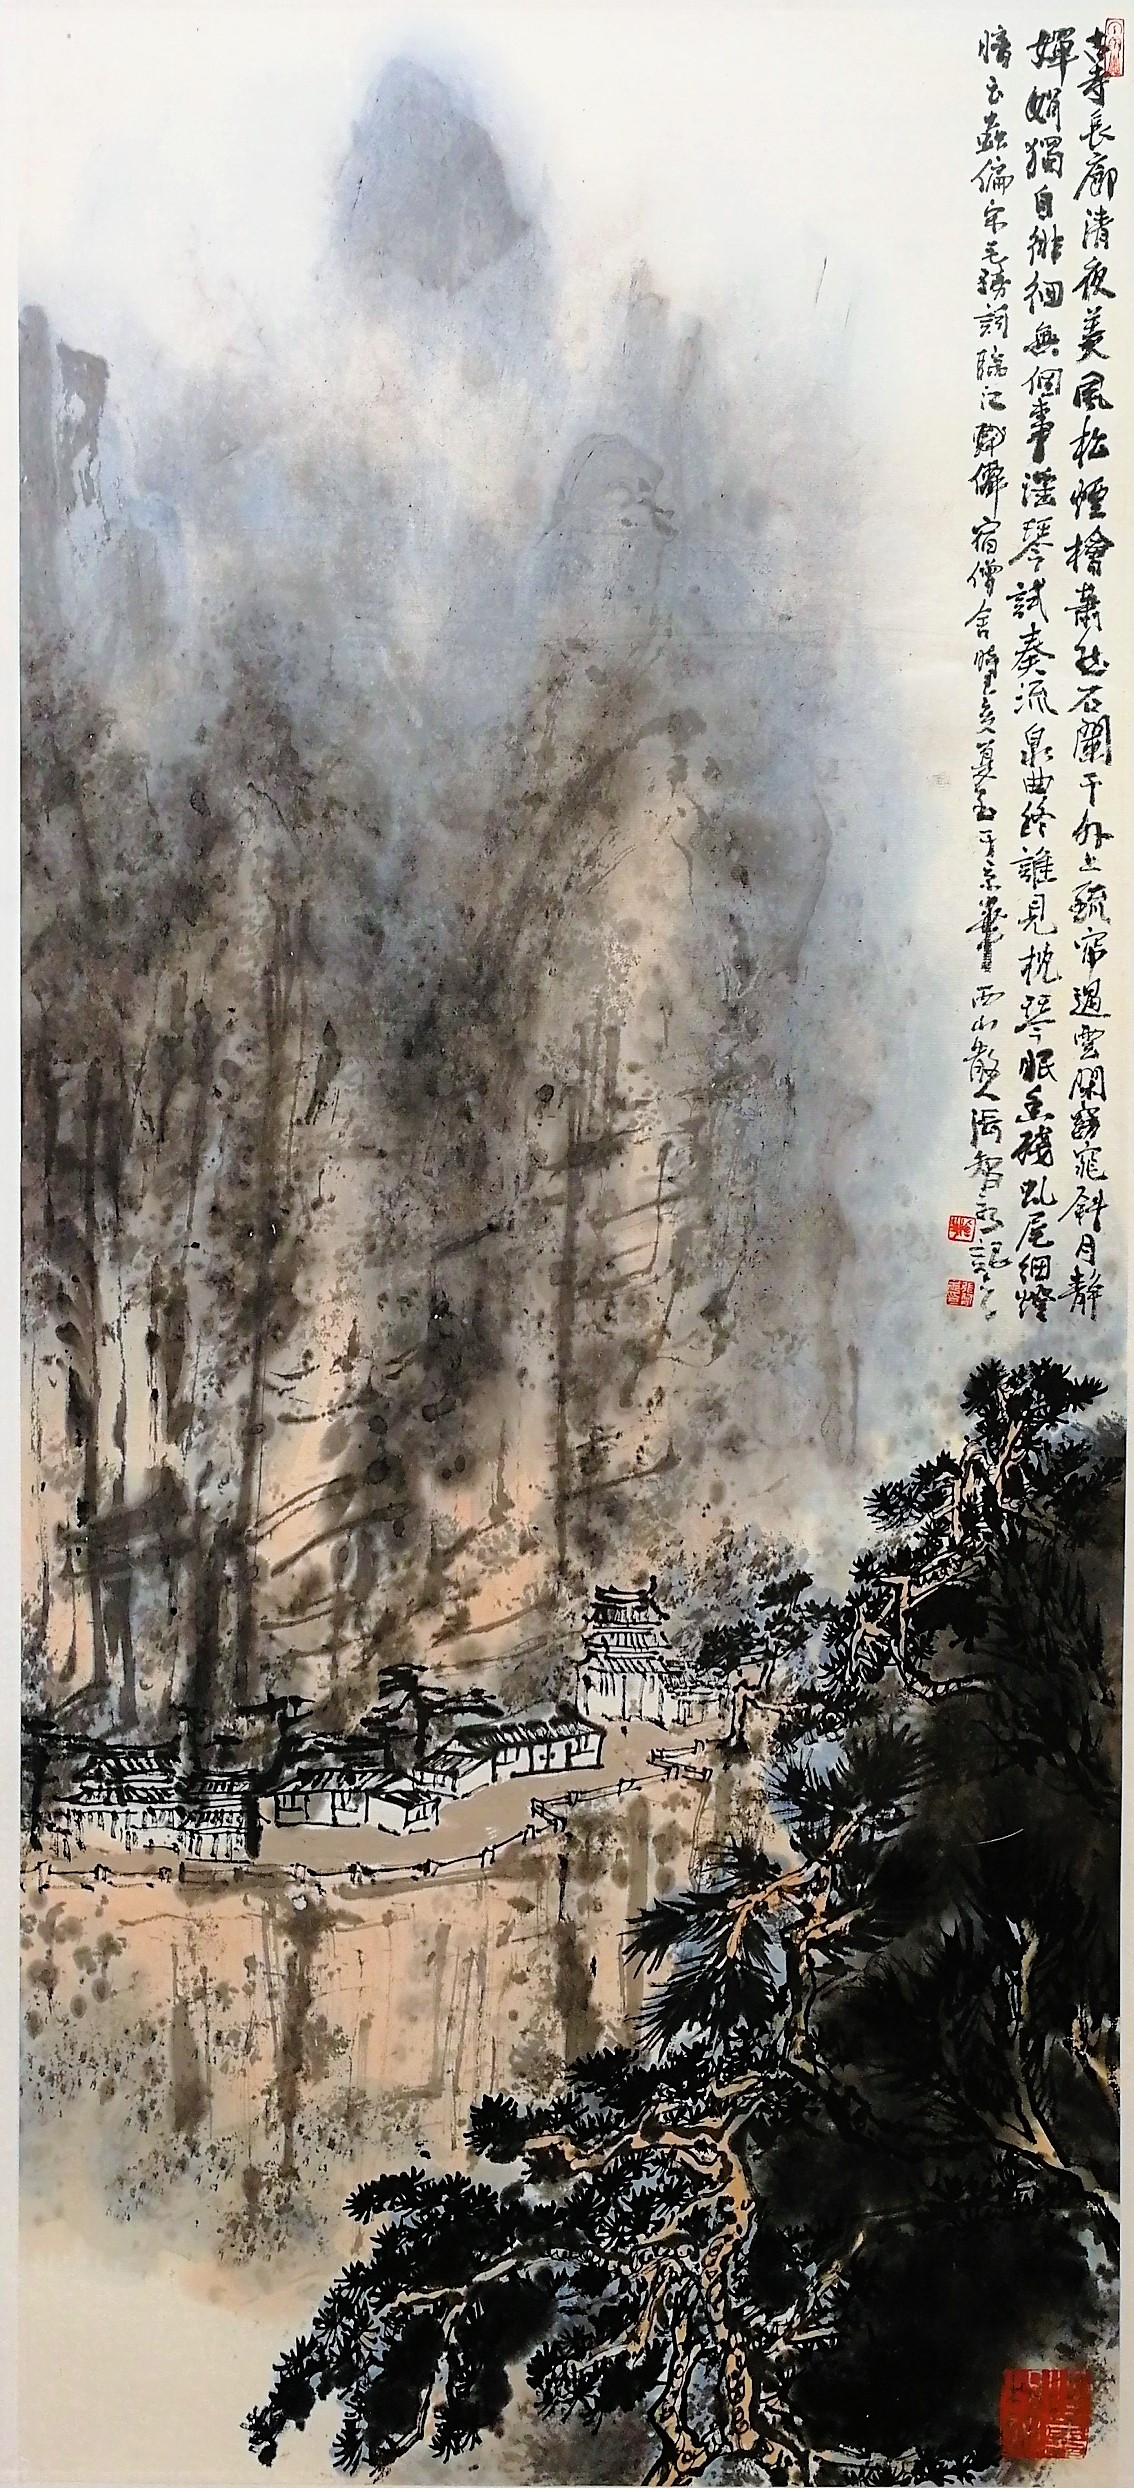 古寺長廊清夜美風松煙檜蕭然石闌干外上疏帘過雲閑窈窕斜月靜
嬋娟獨自徘徊無個事瑤琴試奏流泉曲終誰見枕琴眠香殘虬尾細燈
暗玉蟲偏宋毛滂詞臨江歸僊宿僧舍時亥夏于京華西山散人張智記